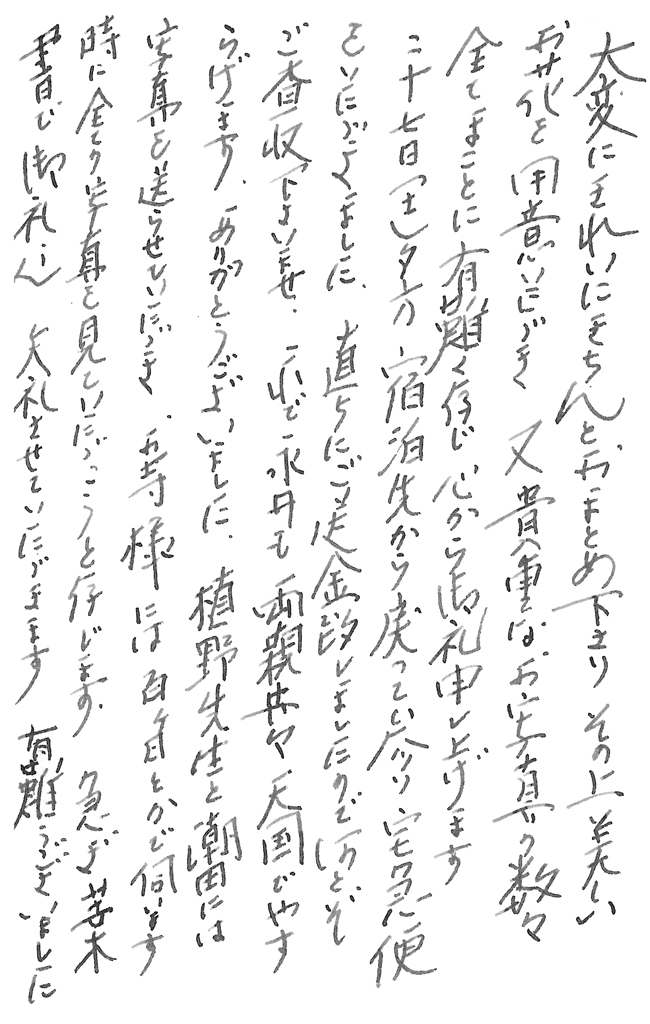 大変にきれいにきちんとおまとめ下さり その上 美しい
お花を用意いただき 又 貴重なお写真の数々
全てまことに有難く存じ 心から御礼申し上げます
二十七日 夕方 宿泊先から戻って参り 宅急便
をいただきました、直ちにご送金致しましたので 何とぞ
ご査収下さいませ、これで永井も両親共々 天国でやす
らげます、ありがとうございました、植野先生と潮田には
写真を送らせていただき、お寺様には百ヶ日とかで伺います
時に全ての写真を見ていただこうと存じます、急ぎ 苦木
書で 御礼まで 失礼させていただきます 有難うございました